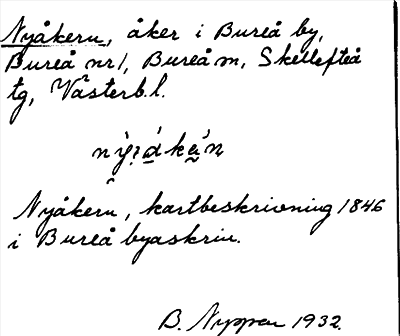 Nyåkern, åker i Bureå by,
Bureå nr 1, Bureå m, Skellefteå
tg, Västerb.l.
Nyåkern, kartbeskrivning 1846
i Bureå byaskrin.
B. Nyppen 1932.